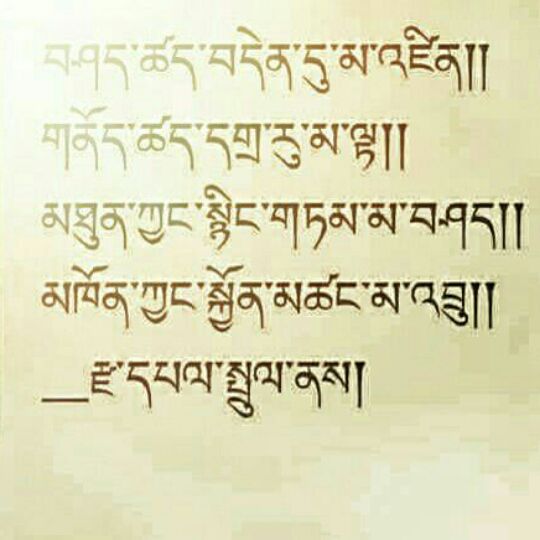 བཤད་ཚད་བདེན་དུ་མ་འཛིན།།
གནོད་ཚད་དགྲ་རུ་མ་ལྟ།།
མཐུན་ཀྱང་སྙིང་གཏམ་མ་བཤད།།
མཁོན་ཀྱང་སྐྱོན་མཚང་མ་འབྲུ།།
__རྫ་དཔལ་སྤྲུལ་ནས།